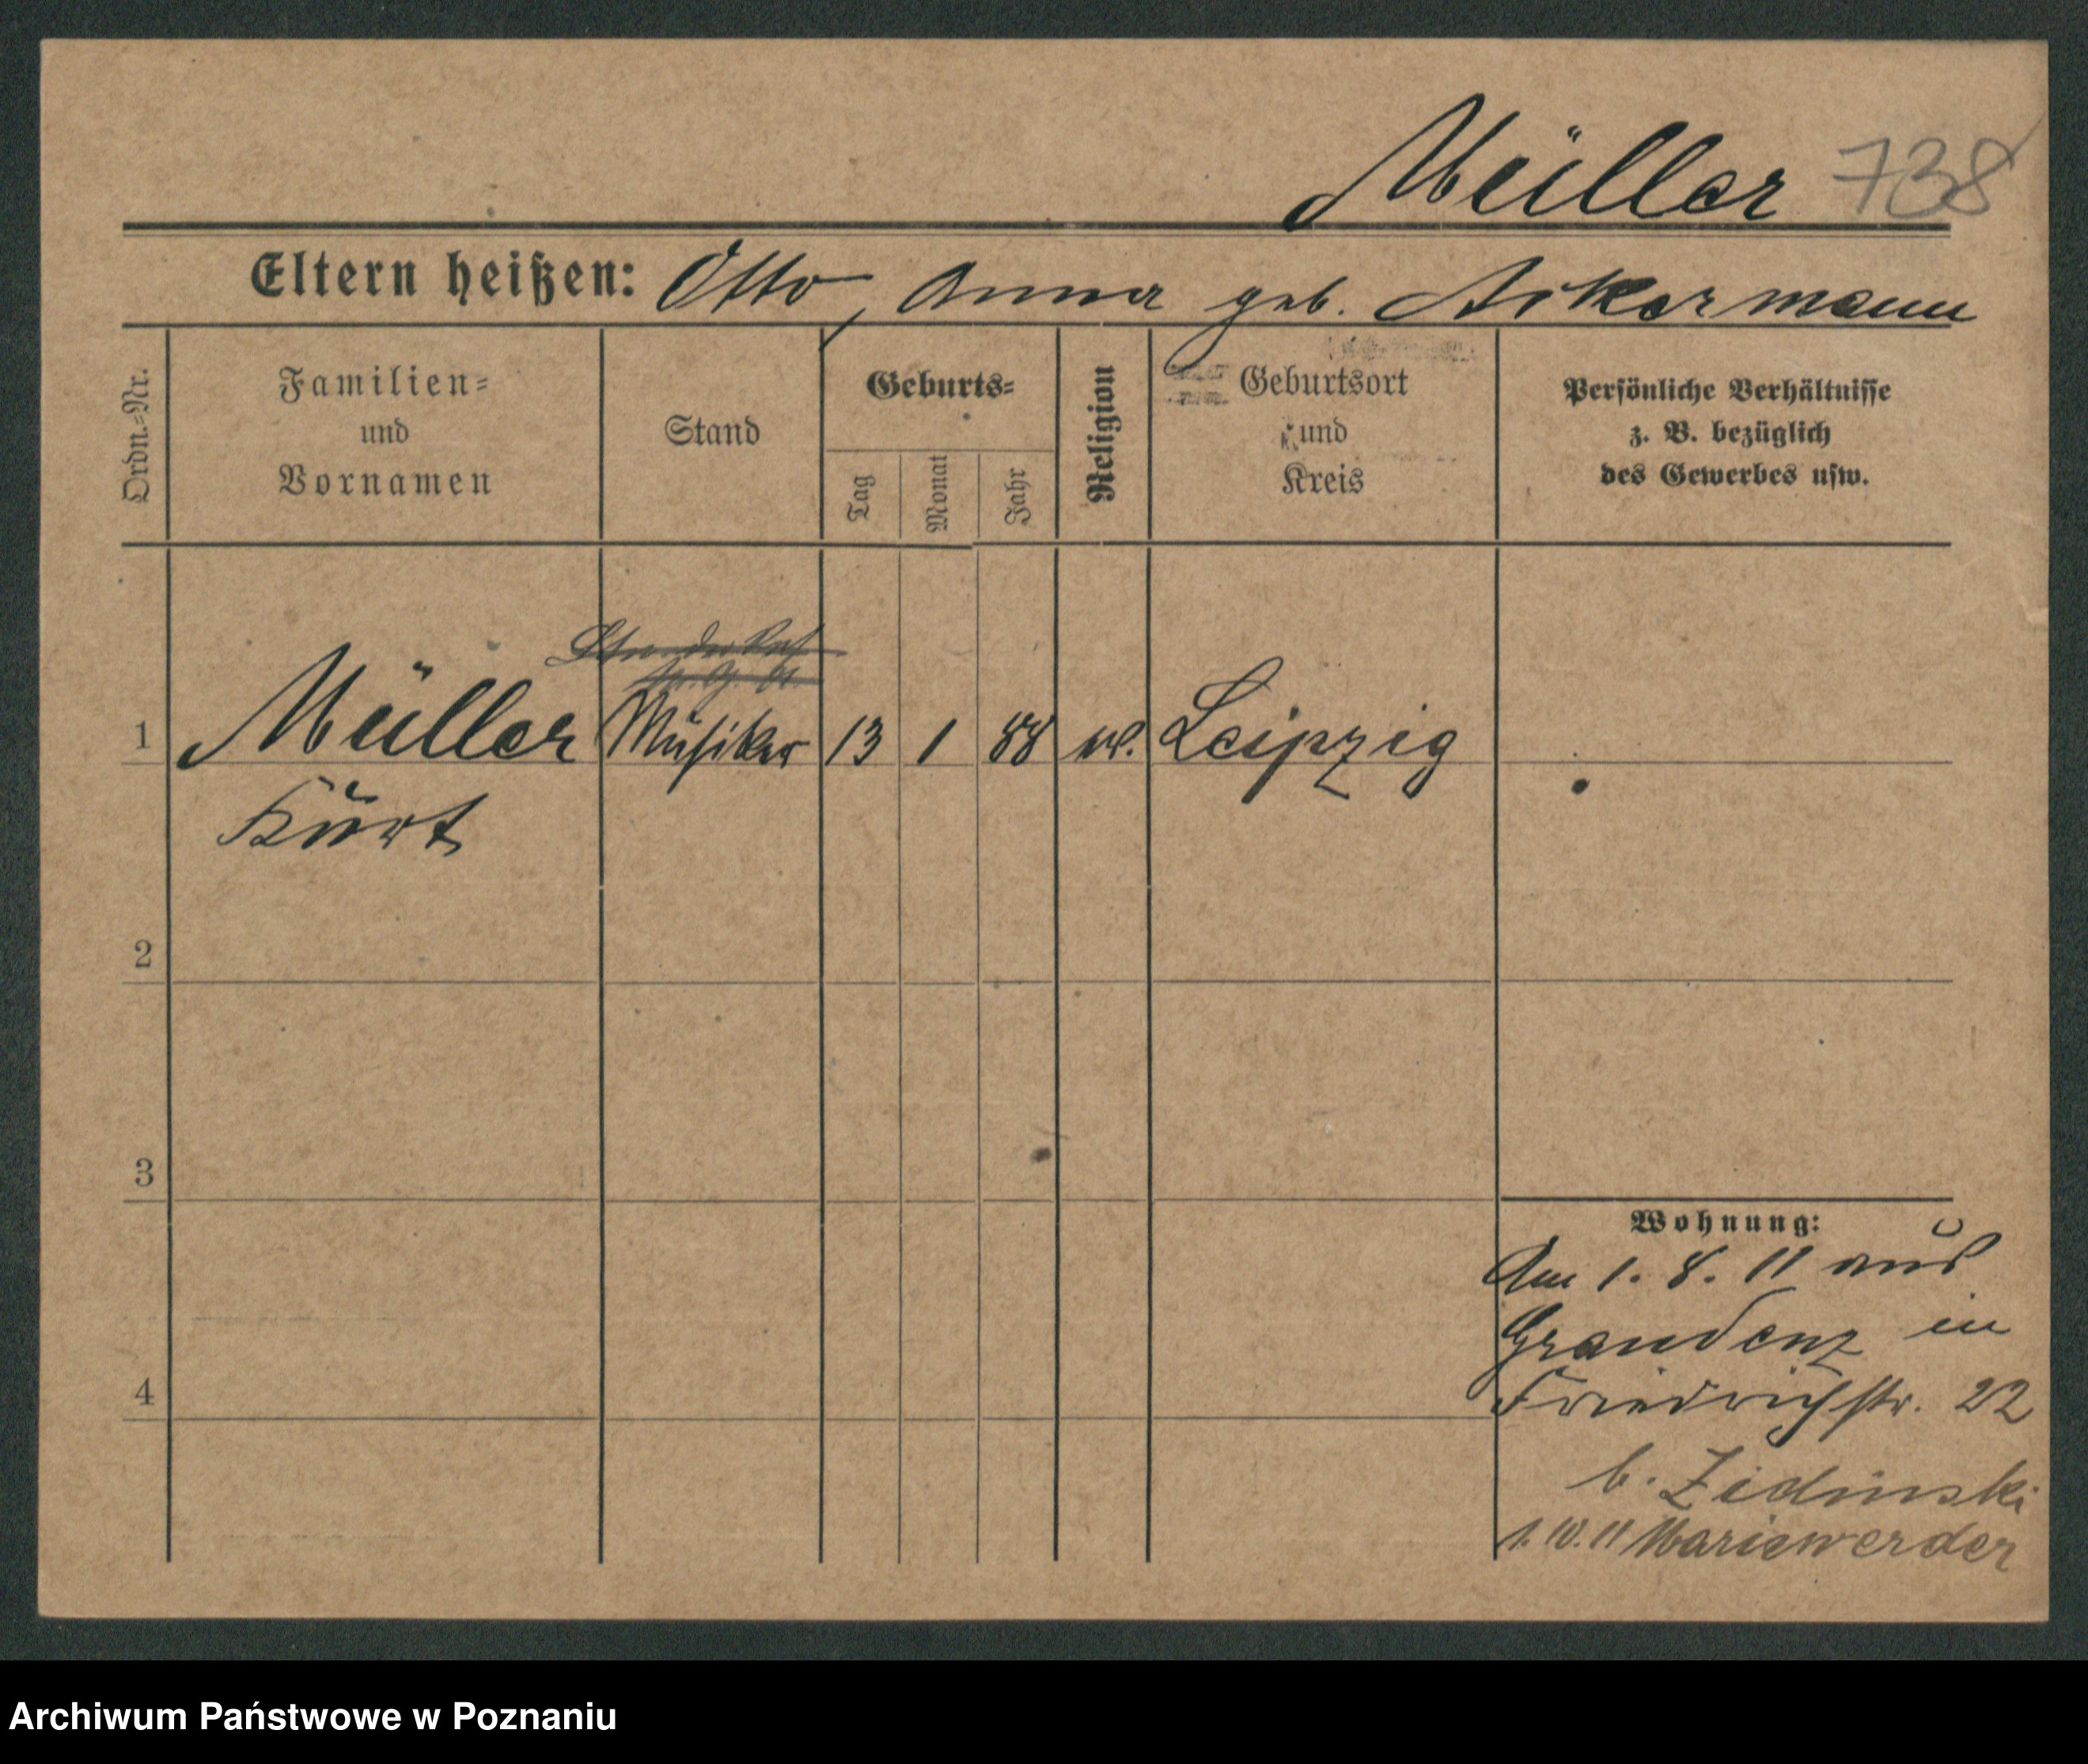 Müller 738
Eltern heißen: Otto, Anna geb. Ackermann
Ordn.-Nr.
Familien-
und
Vornamen
Stand
Geburts-
Tag
Monat
Jahr
Religion
Geburtsort
und
Kreis
Persönliche Verhältnisse
z. B. bezüglich
des Gewerbes usw.
1 Müller Musiker 13 1 88 ev. Leipzig
Kurt
2
3
Wohnung:
Am 1. 8. 11 aus
Graudenz in
4 Friedrichstr. 22
b. Zidinski
1. 10. 11 Marienwerder
Archiwum Państwowe w Poznaniu